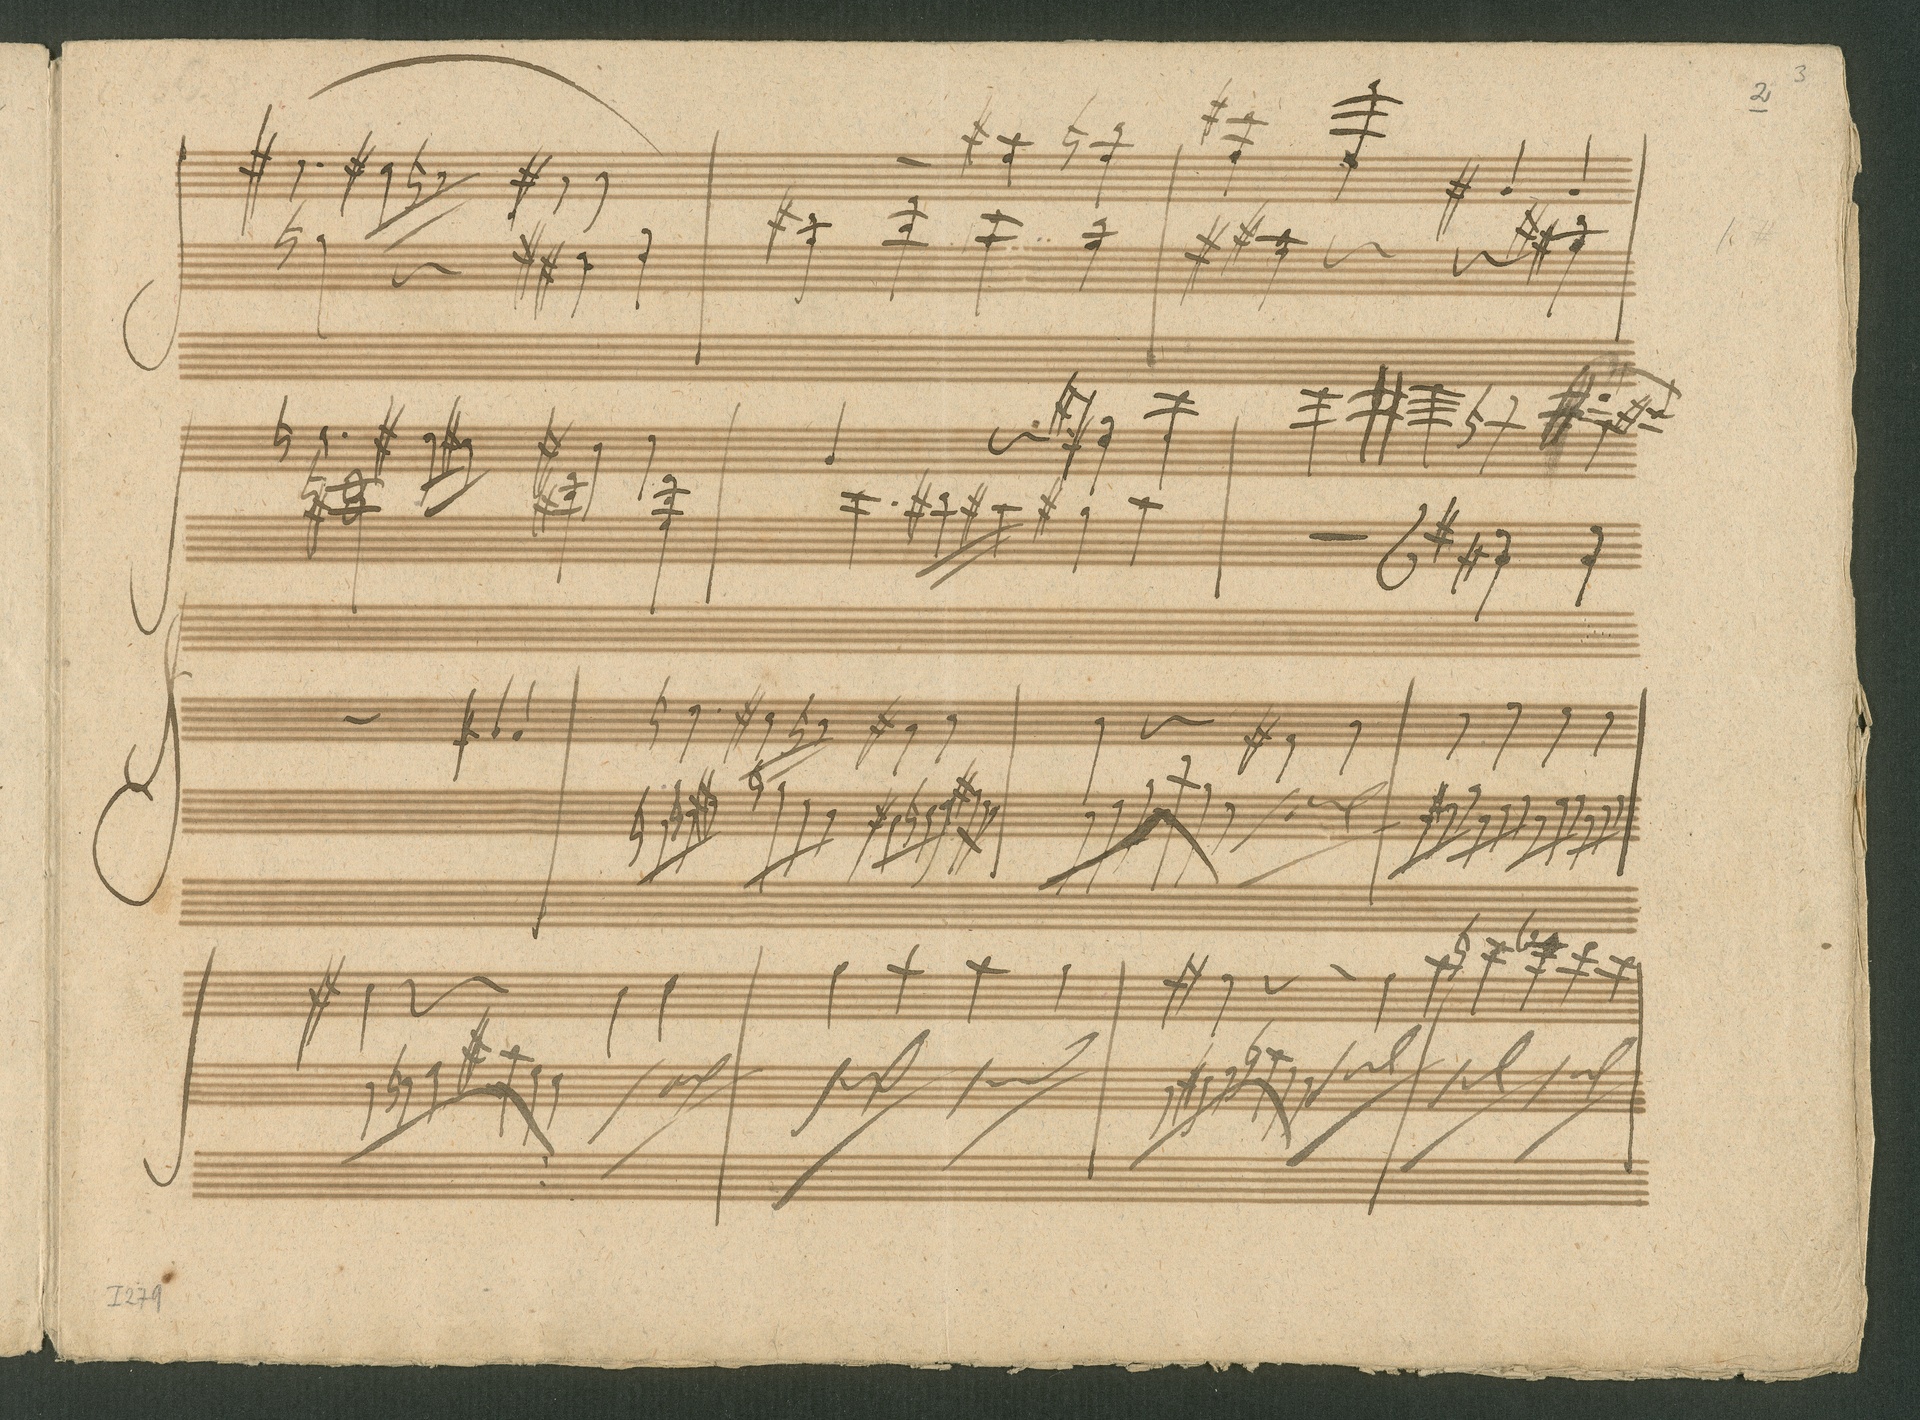 3
2
I279